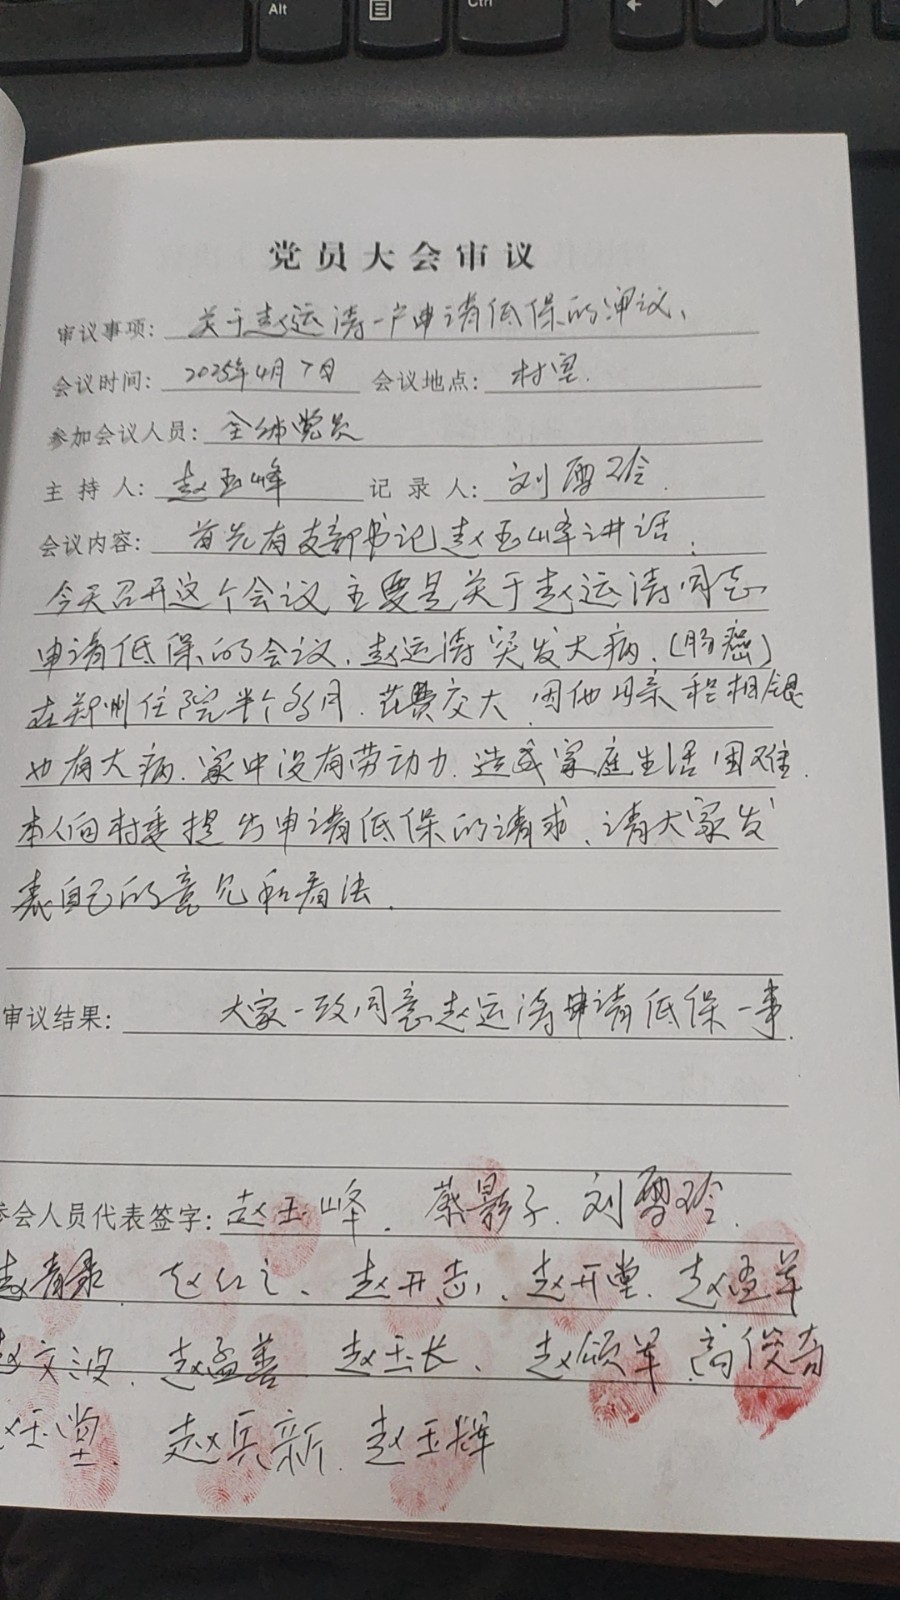 Alt
Ctrl
党员大会审议
审议事项: 关于赵运涛一户申请低保的审议、
会议时间: 2025年4月7日 会议地点: 村室.
参加会议人员: 全体党员
主持人: 赵玉峰 记录人: 刘雪玲.
会议内容: 首先有支部书记赵玉峰讲话:
今天召开这个会议主要是关于赵运涛同志
申请低保的会议.赵运涛突发大病.(肠癌)
在郑州住院半个多月.花费交大.因他母亲程相银
也有大病.家中没有劳动力.造成家庭生活困难.
本人向村委提出申请低保的请求、请大家发
表自己的意见和看法.
审议结果: 大家一致同意赵运涛申请低保一事.
参会人员代表签字: 赵玉峰. 蔡影子. 刘雪玲.
赵青录. 赵红之、赵开志、赵开堂. 赵孟军
赵文波. 赵孟善 赵玉长、赵领军 高俊奇
赵玉堂. 赵兵新. 赵玉辉